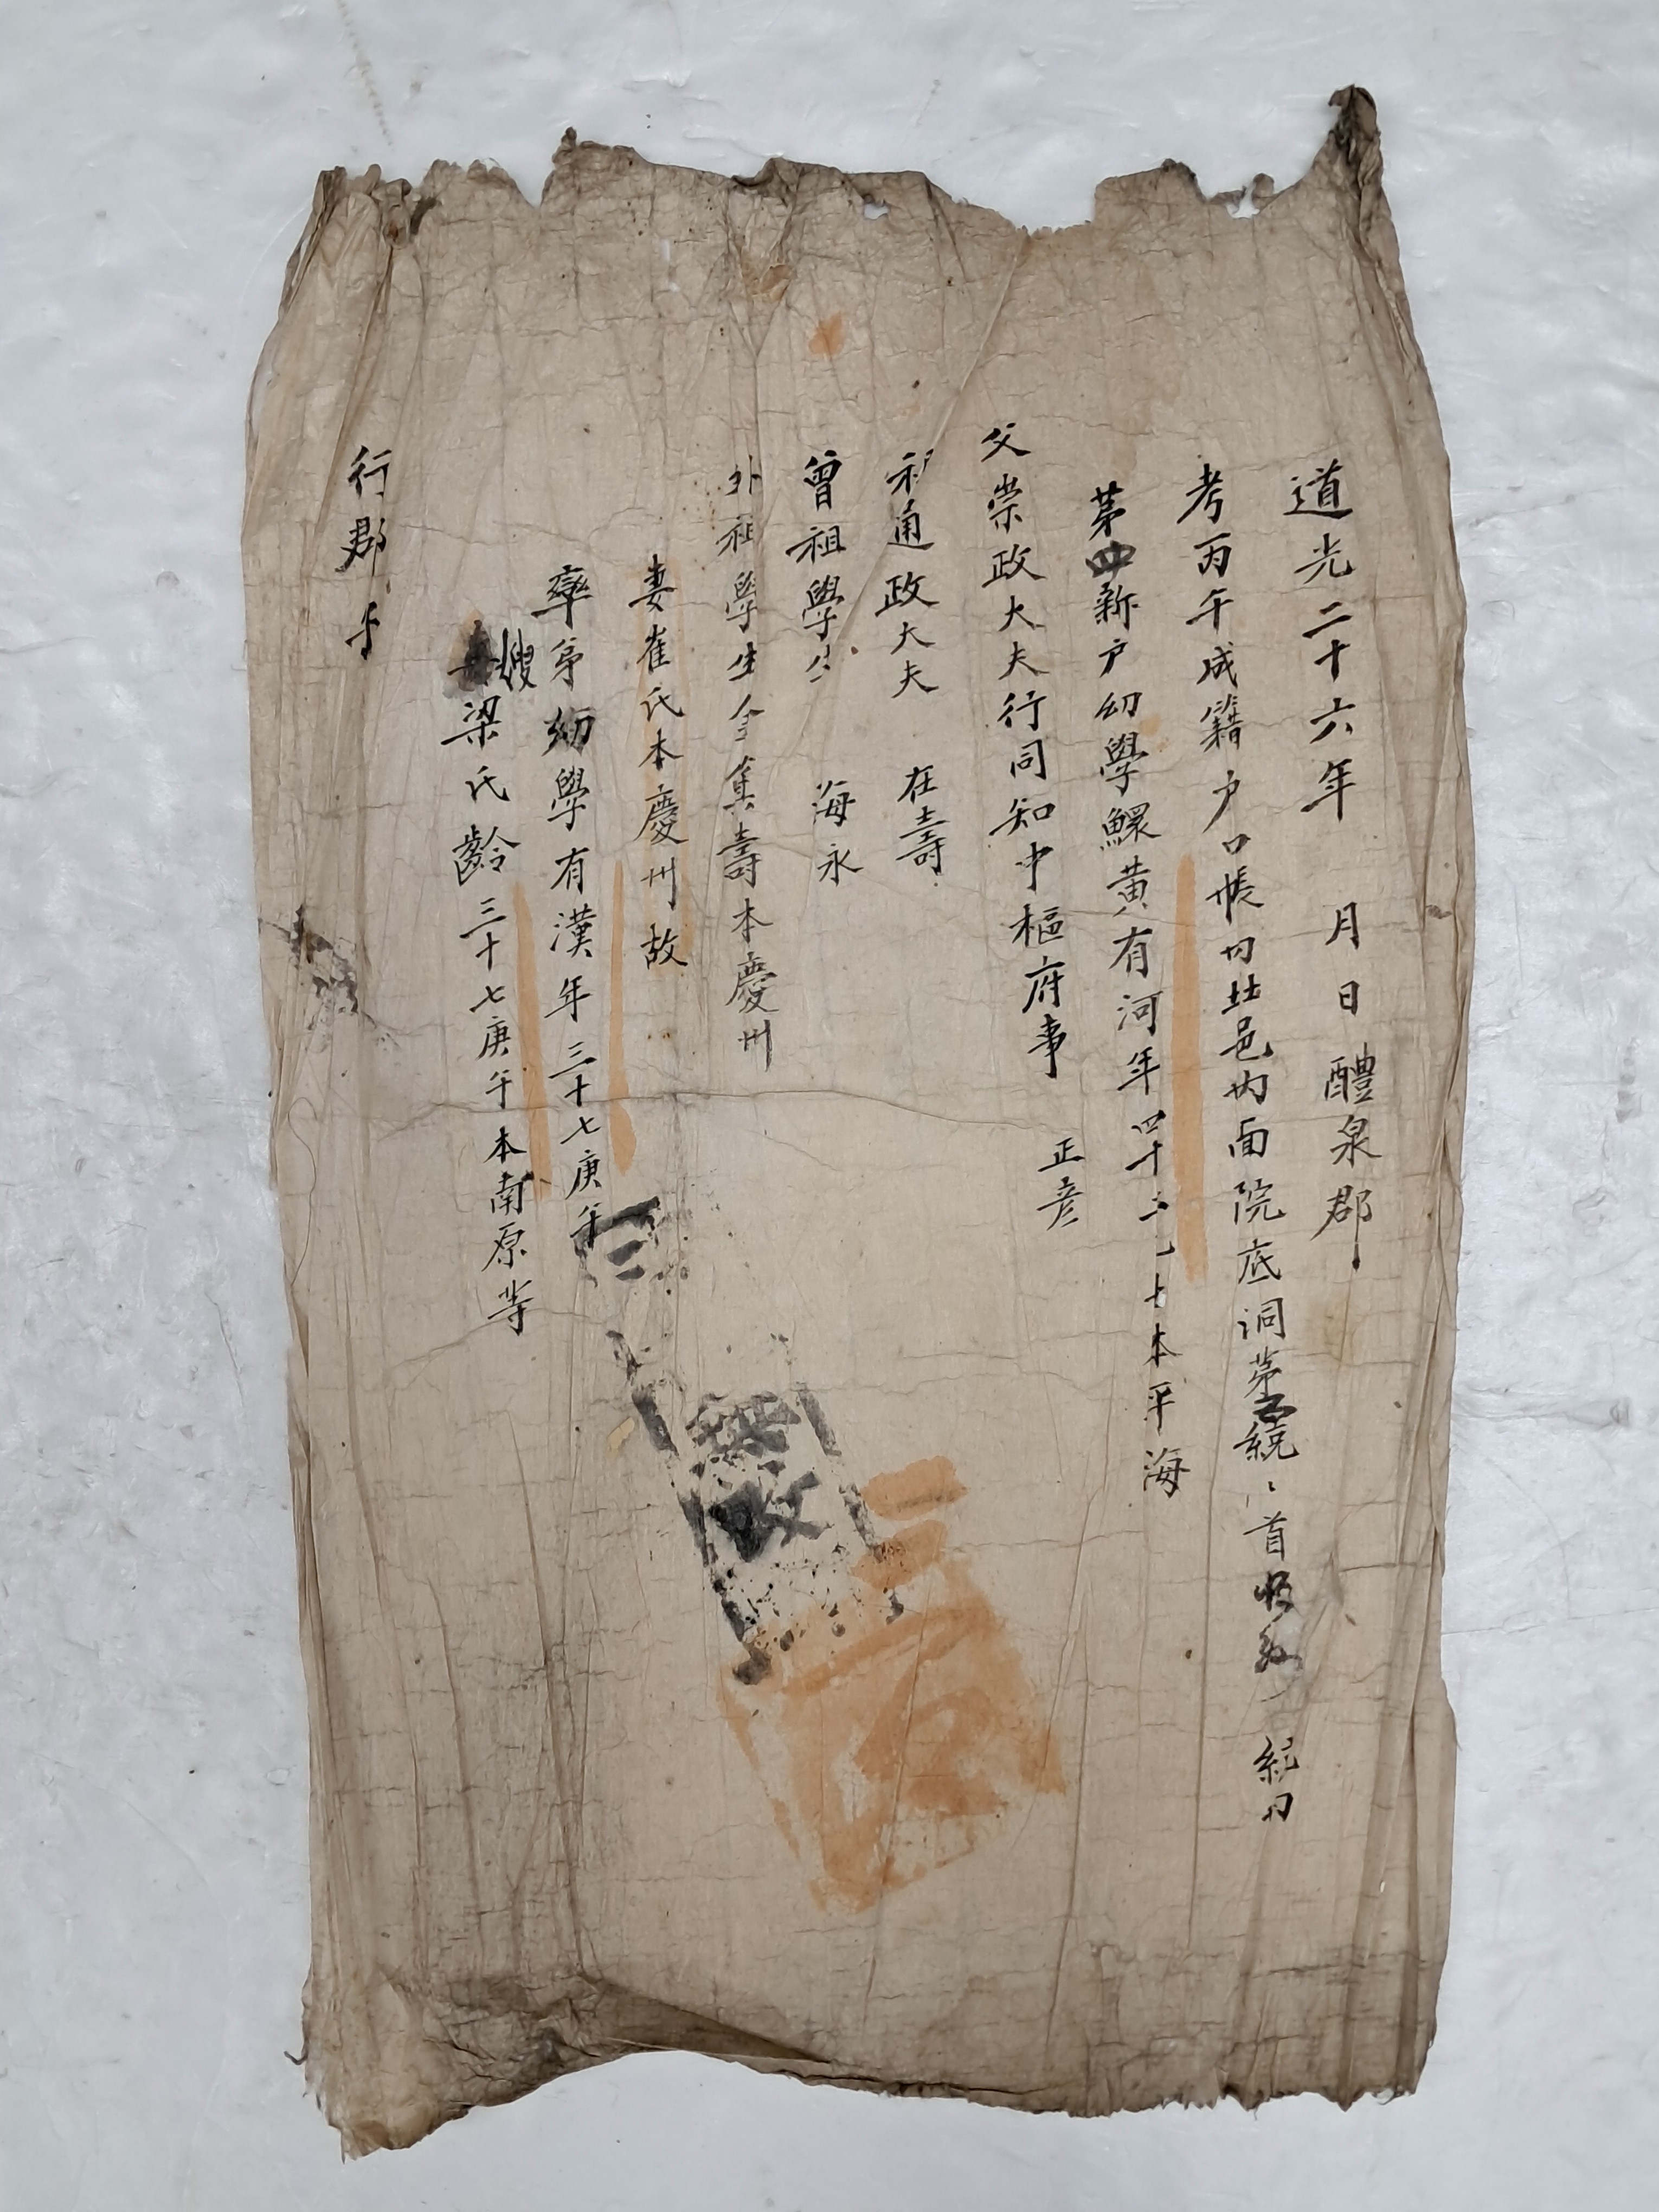 道光二十六年 月 日 醴泉郡
考丙午成籍户口帳內北邑內面院底洞第 統 首 統內
第四新户幼學鰥黃有河年四十 本平海
父崇政大夫行同知中樞府事 正彦
祖通政大夫 在壽
曾祖學生 海永
外祖學生金 壽本慶州
妻崔氏本慶州故
率弟幼學有漢年三十七庚午
嫂梁氏齡三十七庚午本南原等
行郡守
無改